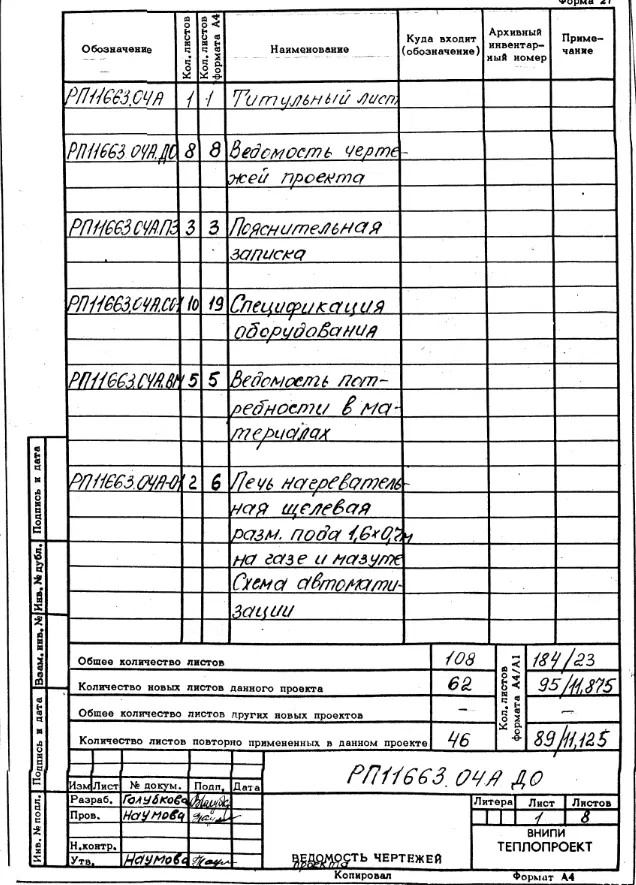 Форма 27
Обозначение Кол. листов Кол. листов формата А4 Наименование Куда входит (обозначение) Архивный инвентарный номер Примечание
РП11663.04А 1 1 Титульный лист
РП11663 04А.ДО 8 8 Ведомость черте-
жей проекта
РП11663 04А ПЗ 3 3 Пояснительная
записка
РП11663.04А.СО1 10 19 Спецификация
оборудования
РП11663.04А.ВМ 5 5 Ведомость пот-
ребности в ма-
териалах
РП11663.04А-01 2 6 Печь нагреватель-
ная щелевая
разм. пода 1,6×0,7м
на газе и мазуте
Схема автомати-
зации
Общее количество листов 108 184/23
Количество новых листов данного проекта 62 95/11,875
Общее количество листов других новых проектов – –
Количество листов повторно примененных в данном проекте 46 89/11,125
Кол. листов формата А4/А1
Подпись и дата
Инв. № дубл.
Взам. инв. №
Подпись и дата
Инв. № подл.
РП11663.04А ДО
Изм Лист № докум. Подп. Дата
Разраб. Голубкова
Пров. Наумова
Н.контр.
Утв. Наумова
Литера Лист Листов
1 8
ВЕДОМОСТЬ ЧЕРТЕЖЕЙ
проекта
ВНИПИ
ТЕПЛОПРОЕКТ
Копировал Формат А4